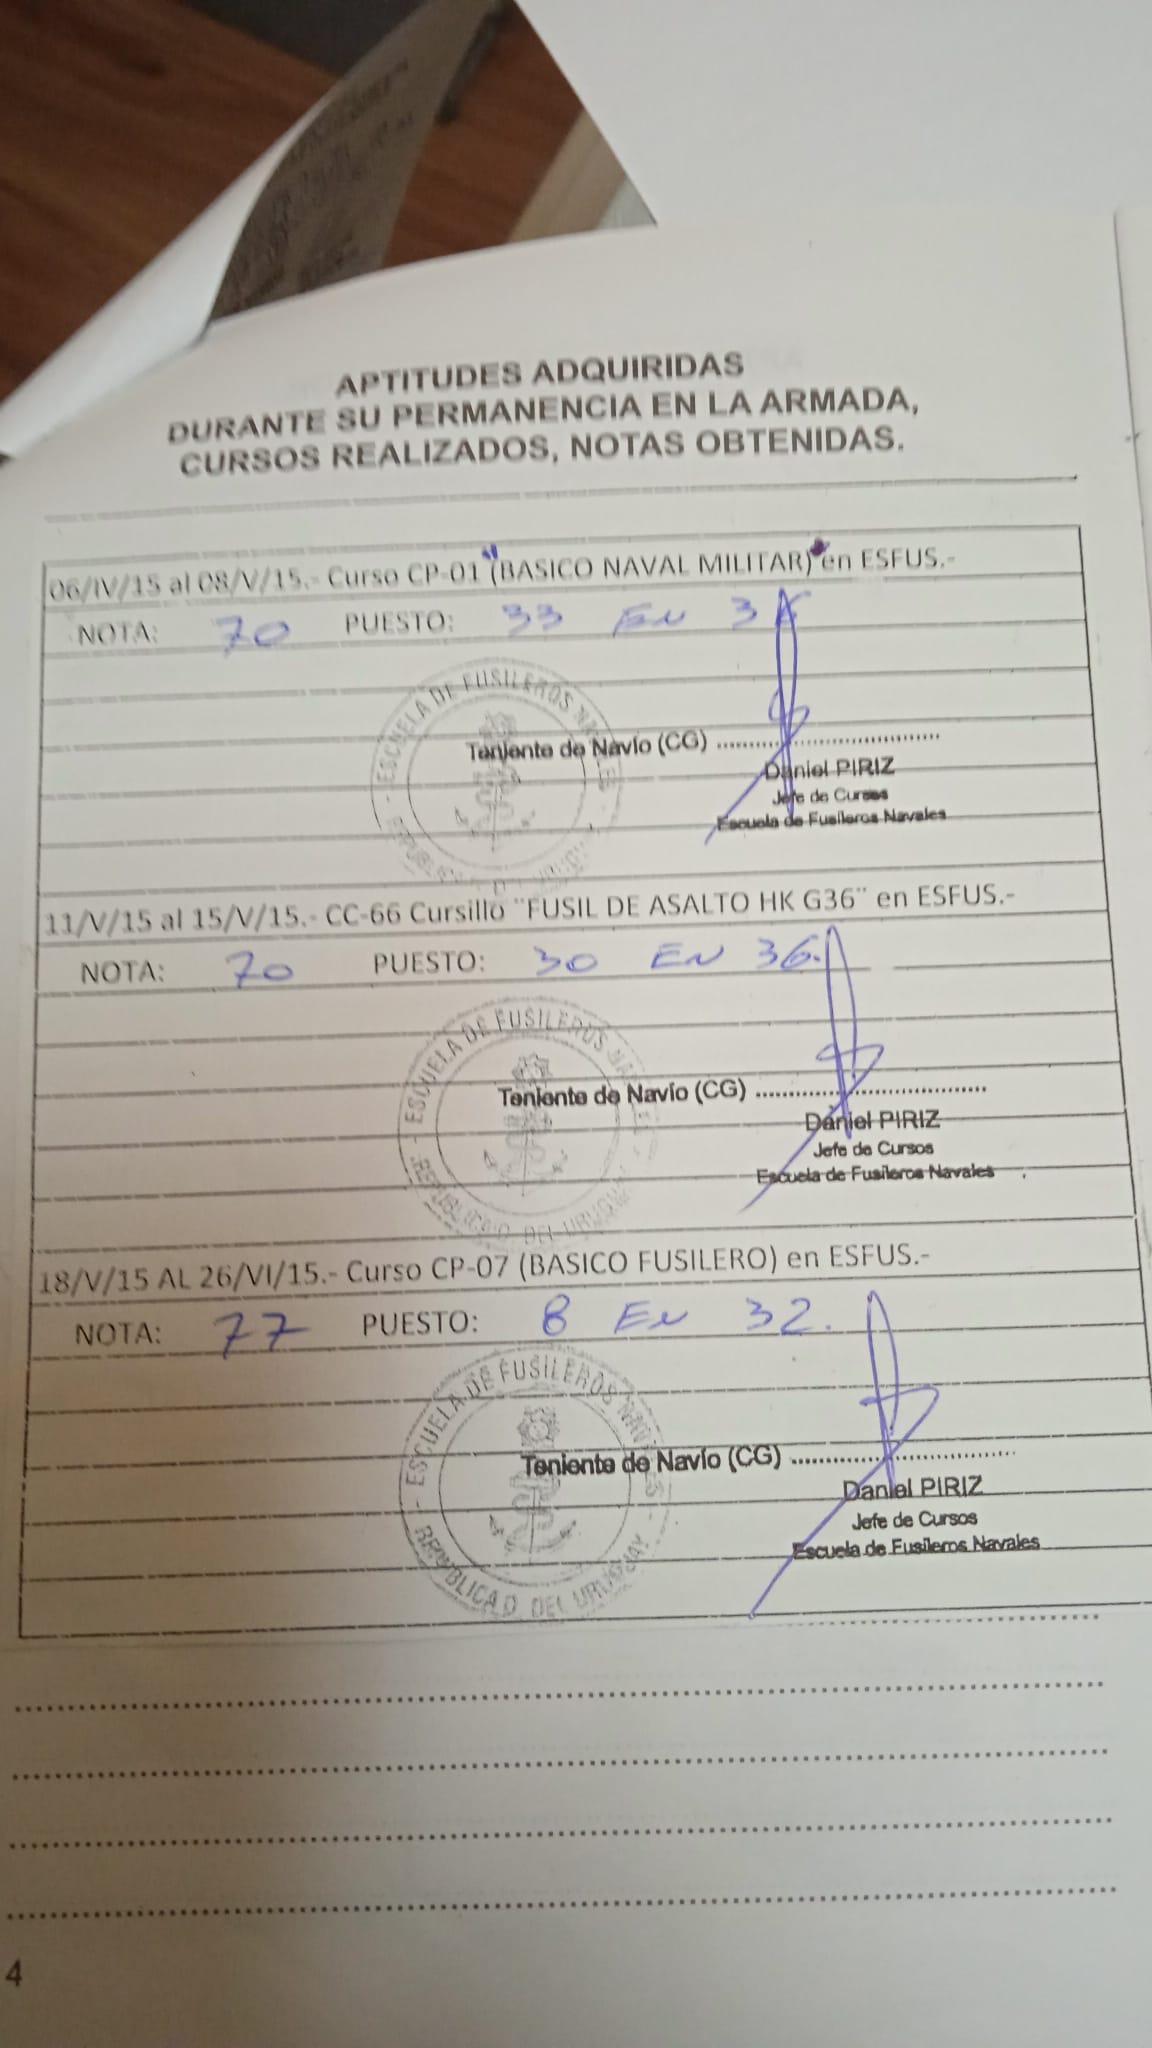 APTITUDES ADQUIRIDAS
DURANTE SU PERMANENCIA EN LA ARMADA,
CURSOS REALIZADOS, NOTAS OBTENIDAS.
06/IV/15 al 08/V/15.- Curso CP-01 "(BASICO NAVAL MILITAR)" en ESFUS.-
NOTA: 70 PUESTO: 33 EN 3
ESCUELA DE FUSILEROS NAVALES
REPUBLICA O. DEL URUGUAY
Teniente de Navío (CG) ..............................
Daniel PIRIZ
Jefe de Cursos
Escuela de Fusileros Navales
11/V/15 al 15/V/15.- CC-66 Cursillo ¨FUSIL DE ASALTO HK G36¨ en ESFUS.-
NOTA: 70 PUESTO: 30 EN 36.
ESCUELA DE FUSILEROS NAVALES
REPUBLICA O. DEL URUGUAY
Teniente de Navío (CG) ..............................
Daniel PIRIZ
Jefe de Cursos
Escuela de Fusileros Navales
18/V/15 AL 26/VI/15.- Curso CP-07 (BASICO FUSILERO) en ESFUS.-
NOTA: 77 PUESTO: 8 EN 32.
ESCUELA DE FUSILEROS NAVALES
REPUBLICA O. DEL URUGUAY
Teniente de Navío (CG) ..............................
Daniel PIRIZ
Jefe de Cursos
Escuela de Fusileros Navales
4